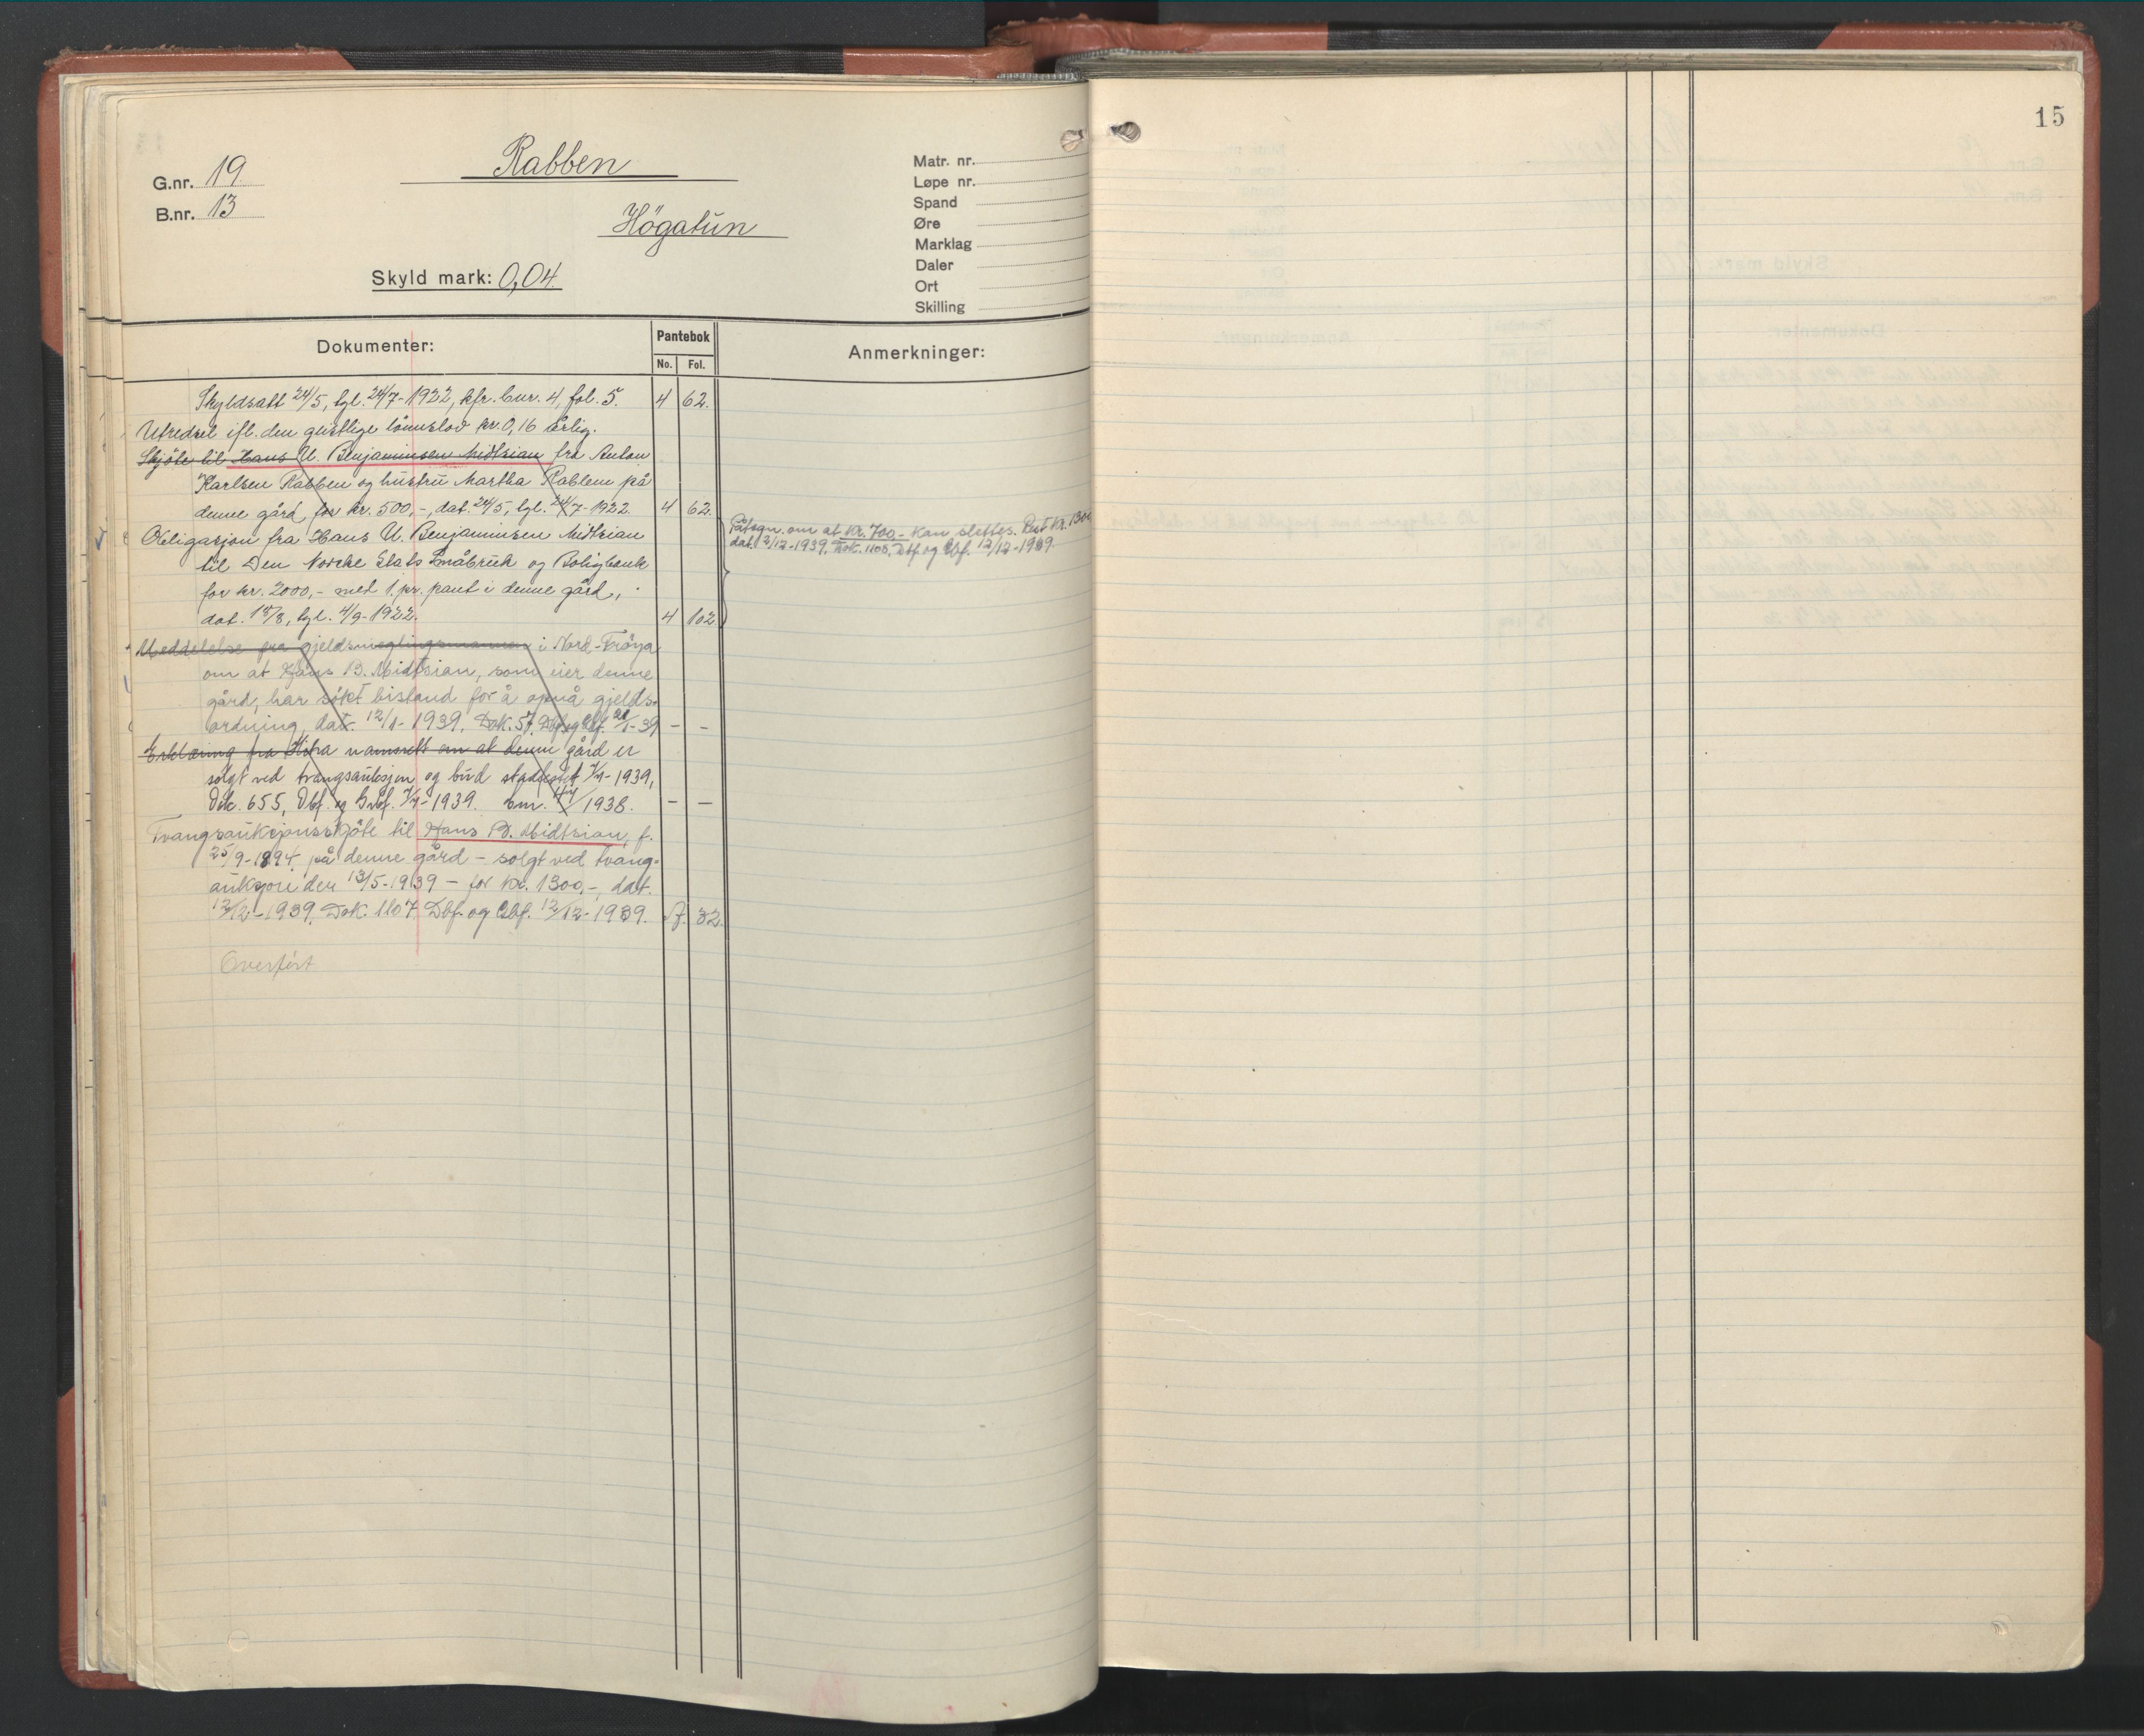 15
G.nr. 19
B.nr. 13
Rabben
Högatun
Skyld mark: 0,04.
Matr. nr.
Løpe nr.
Spand
Øre
Marklag
Daler
Ort
Skilling
Dokumenter:
Pantebok
No. Fol.
Anmerkninger:
Skyldsatt 24/5, tgl. 24/7-1922, kfr. bnr. 4, fol. 5. 4 62.
Utredsel ifl. den geistlige lønnslov kr. 0,16 årlig.
Skjöte til Hans U. Benjaminsen Midtsian fra Anton
Karlsen Rabben og hustru Martha Rabben på
denne gård for kr. 500,-, dat. 24/5, tgl. 24/7-1922. 4 62.
Obligasjon fra Hans U. Benjaminsen Midtsian
til Den Norske Stats Småbruk og Boligbank
for kr. 2000,- med 1. pr. pant i denne gård,
dat. 15/8, tgl. 4/9-1922. 4 102
Påtegn. om at kr. 700.- kan slettes. Rest kr. 1300
dat. 2/12-1939. Dok. 1105, Dbf. og Gbf. 12/12-1939.
Meddelelse fra gjeldsmeglingsmannen i Nord-Fröya
om at Hans B. Midtsian, som eier denne
gård, har søkt bistand for å opnå gjelds-
ordning, dat. 12/1-1939. Dok. 57, Dbf og Gbf. 21/1-39 - -
Erklæring fra Hitra namsrett om at denne gård er
solgt ved tvangsauksjon og bud stadfestet
Dok. 655, Dbf. og Gbf. 1938. - -
Tvangsauksjonsskjöte til Hans B. Midtsian, f.
25/9-1894, på denne gård - solgt ved tvang-
auksjon den 13/5-1939 - for kr. 1300,-, dat.
12/12-1939. Dok. 1107 Dbf. og Gbf. 12/12-1939. A. 32.
Overført